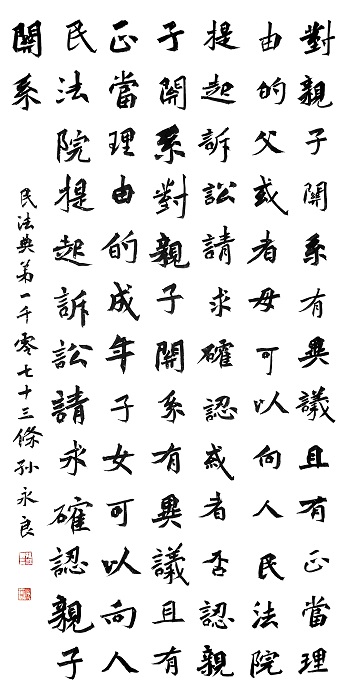 對親子關系有異議且有正當理
由的父或者母可以向人民法院
提起訴訟請求確認或者否認親
子關系對親子關系有異議且有
正當理由的成年子女可以向人
民法院提起訴訟請求確認親子
關系
民法典第一千零七十三條孙永良